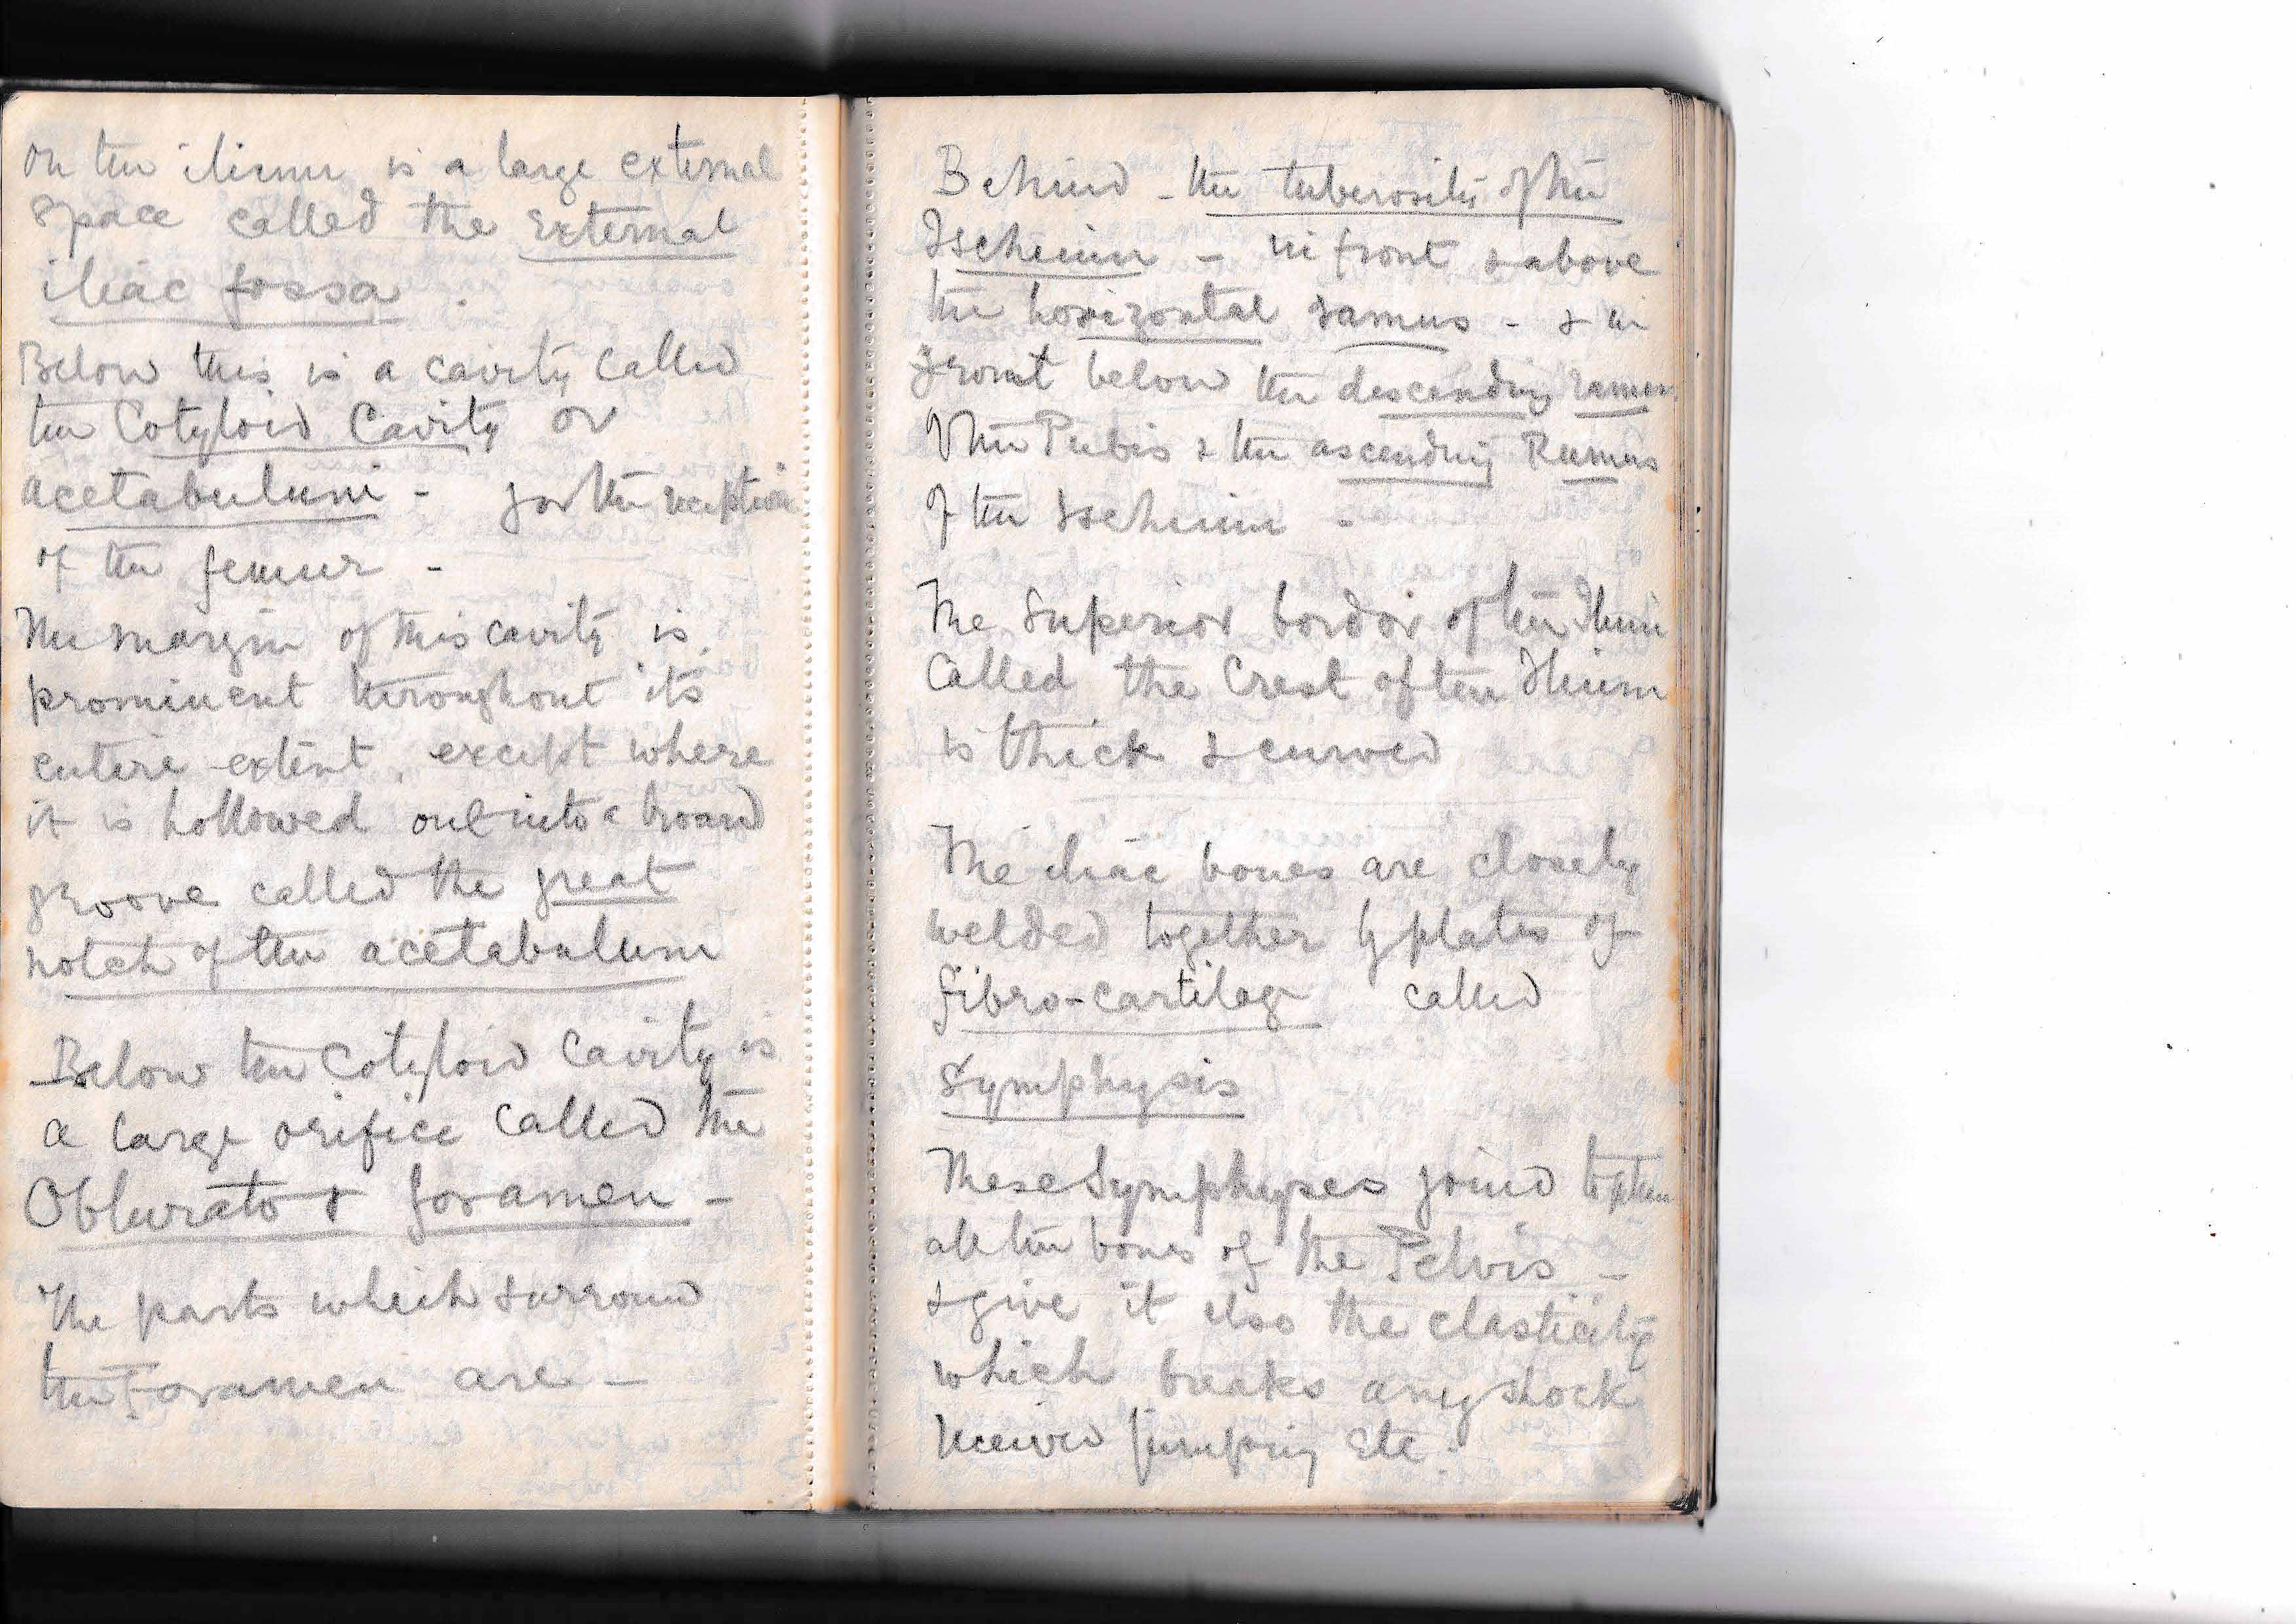 On the ilium is a large external
space called the External
iliac fossa.
Below this is a cavity called
the Cotyloid Cavity or
acetabulum - for the reception
of the femur -
The margin of this cavity is
prominent throughout its
entire extent, except where
it is hollowed out into a broad
groove called the great
notch of the acetabulum
Below the Cotyloid Cavity is
a large orifice called the
Obturator foramen -
The parts which surround
the Foramen are -
Behind - the tuberosity of the
Ischium - in front & above
the horizontal ramus - & in
front below the descending ramus
of the Pubis & the ascending Ramus
of the Ischium -
The Superior border of the Ilium
Called the Crest of the Ilium
is thick & curved
The iliac bones are closely
welded together by plates of
fibro-cartilage called
Symphysis
These Symphyses joined together
all the bones of the Pelvis -
& give it also the elasticity
which breaks any shock
received jumping etc.